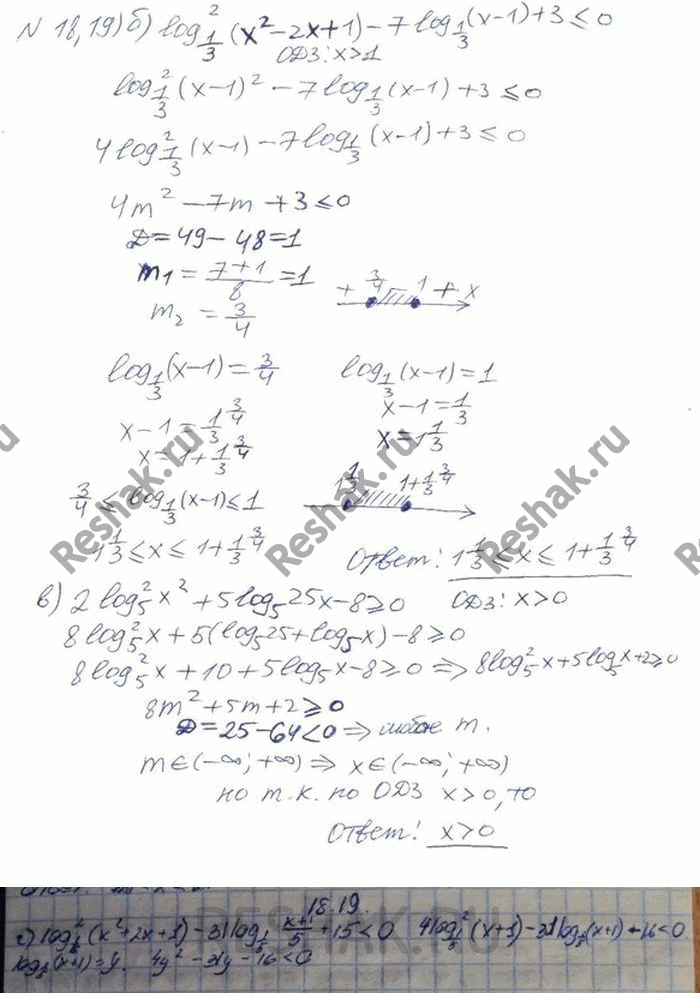 N 18,19) б) log²_{1/3} (x² - 2x + 1) - 7 log_{1/3} (x-1) + 3 ≤ 0
ОДЗ: x > 1
log²_{1/3} (x-1)² - 7 log_{1/3} (x-1) + 3 ≤ 0
4 log²_{1/3} (x-1) - 7 log_{1/3} (x-1) + 3 ≤ 0
4m² - 7m + 3 ≤ 0
D = 49 - 48 = 1
m₁ = (7+1)/8 = 1
+ 3/4 - 1 + x
m₂ = 3/4
log_{1/3} (x-1) = 3/4
log_{1/3} (x-1) = 1
x - 1 = 1/3^{3/4}
x - 1 = 1/3
x = 1 + 1/3^{3/4}
x = 1 1/3
1 1/3
1 + 1/3^{3/4}
3/4 ≤ log_{1/3} (x-1) ≤ 1
1 1/3 ≤ x ≤ 1 + 1/3^{3/4}
Ответ: 1 1/3 ≤ x ≤ 1 + 1/3^{3/4}
в) 2 log²₅ x² + 5 log₅ 25x - 8 ≥ 0
ОДЗ: x > 0
8 log²₅ x + 5 (log₅ 25 + log₅ x) - 8 ≥ 0
8 log²₅ x + 10 + 5 log₅ x - 8 ≥ 0 ⇒ 8 log²₅ x + 5 log₅ x + 2 ≥ 0
8m² + 5m + 2 ≥ 0
D = 25 - 64 < 0 ⇒ любое m.
m ∈ (-∞; +∞) ⇒ x ∈ (-∞; +∞)
но т.к. по ОДЗ x > 0, то
Ответ: x > 0
18.19.
г) log²_{1/5} (x² + 2x + 1) - 31 log_{1/5} (x+1)/5 + 15 < 0 4 log²_{1/5} (x+1) - 31 log_{1/5} (x+1) - 16 < 0
log_{1/5} (x+1) = y. 4y² - 31y - 16 < 0
Reshak.ru
Reshak.ru
Reshak.ru
RESHAK.RU